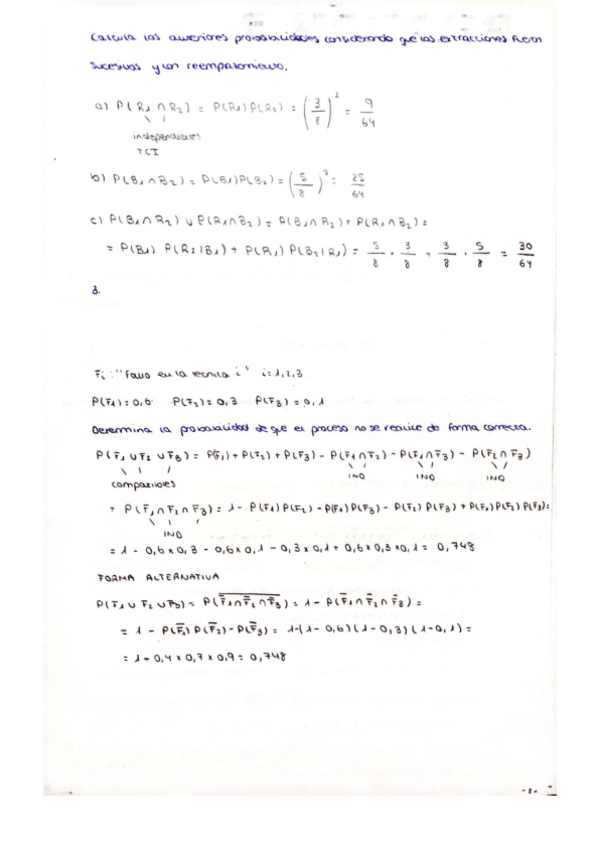 Calcula las anteriores probabilidades considerando que las extracciones fueran
sucesivas y con reemplazamiento.
a) P(R₁ ∩ R₂) = P(R₁)P(R₂) = (3/8)² = 9/64
independientes
b) P(B₁ ∩ B₂) = P(B₁)P(B₂) = (5/8)² = 25/64
c) P(B₁ ∩ R₂) ∪ P(R₁ ∩ B₂) = P(B₁ ∩ R₂) + P(R₁ ∩ B₂) =
= P(B₁) P(R₂|B₁) + P(R₁) P(B₂|R₁) = 5/8 · 3/8 + 3/8 · 5/8 = 30/64
3.
Fi: "Fallo en la técnica i" i=1,2,3
P(F₁)=0,6 P(F₂)=0,3 P(F₃)=0,1
Determina la probabilidad de que el proceso no se realice de forma correcta.
P(F₁ ∪ F₂ ∪ F₃) = P(F₁) + P(F₂) + P(F₃) - P(F₁∩F₂) - P(F₁∩F₃) - P(F₂∩F₃)
compatibles IND IND IND
+ P(F₁∩F₂∩F₃) = 1 - P(F₁)P(F₂) - P(F₁)P(F₃) - P(F₂)P(F₃) + P(F₁)P(F₂)P(F₃)=
IND
= 1 - 0,6x0,3 - 0,6x0,1 - 0,3x0,1 + 0,6x0,3x0,1 = 0,748
FORMA ALTERNATIVA
P(F₁ ∪ F₂ ∪ F₃) = P(F̅₁∩F̅₂∩F̅₃)‾ = 1 - P(F̅₁∩F̅₂∩F̅₃) =
= 1 - P(F̅₁)P(F̅₂)-P(F̅₃) = 1-(1-0,6)(1-0,3)(1-0,1) =
= 1-0,4x0,7x0,9 = 0,748
-1-